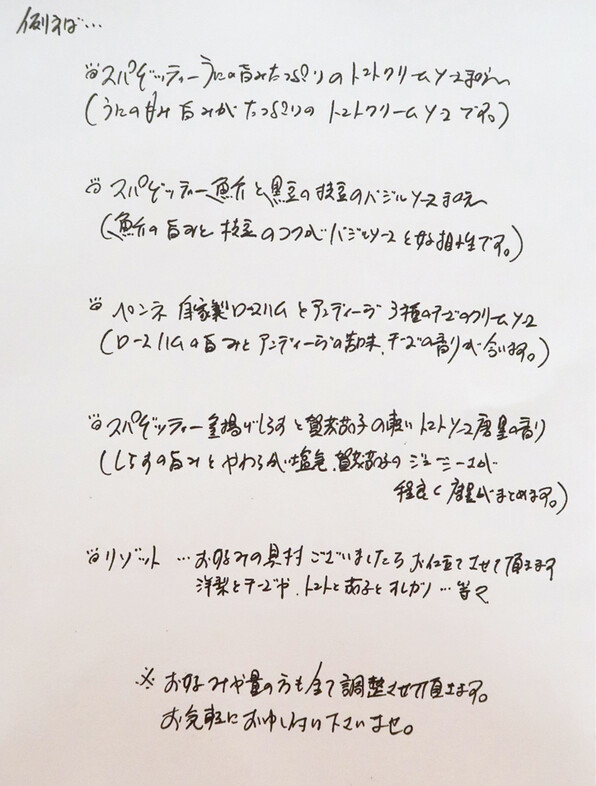 例えば…
スパゲッティーうにの旨みたっぷりのトマトクリームソースまぜ
(うにの甘み旨みがたっぷりのトマトクリームソースです。)
スパゲッティー魚介と黒豆の枝豆のバジルソース
(魚介の旨みと枝豆のコクがバジルソースと好相性です。)
ペンネ 自家製ロースハムとアンディーブ 3種のチーズのクリームソース
(ロースハムの旨みとアンディーブの苦味、チーズの香りが合います。)
スパゲッティー釜揚げしらすと賀茂茄子の軽いトマトソース唐墨の香り
(しらすの旨みとやわらかい塩気、賀茂茄子のジューシーさが
程良く唐墨がまとめます。)
リゾット …お好みの具材ございましたらお仕立てさせて頂きます
洋梨とチーズや、トマトと茄子とオレガノ…等々
※お好みや量の方も全て調整させて頂きます。
お気軽にお申し付け下さいませ。